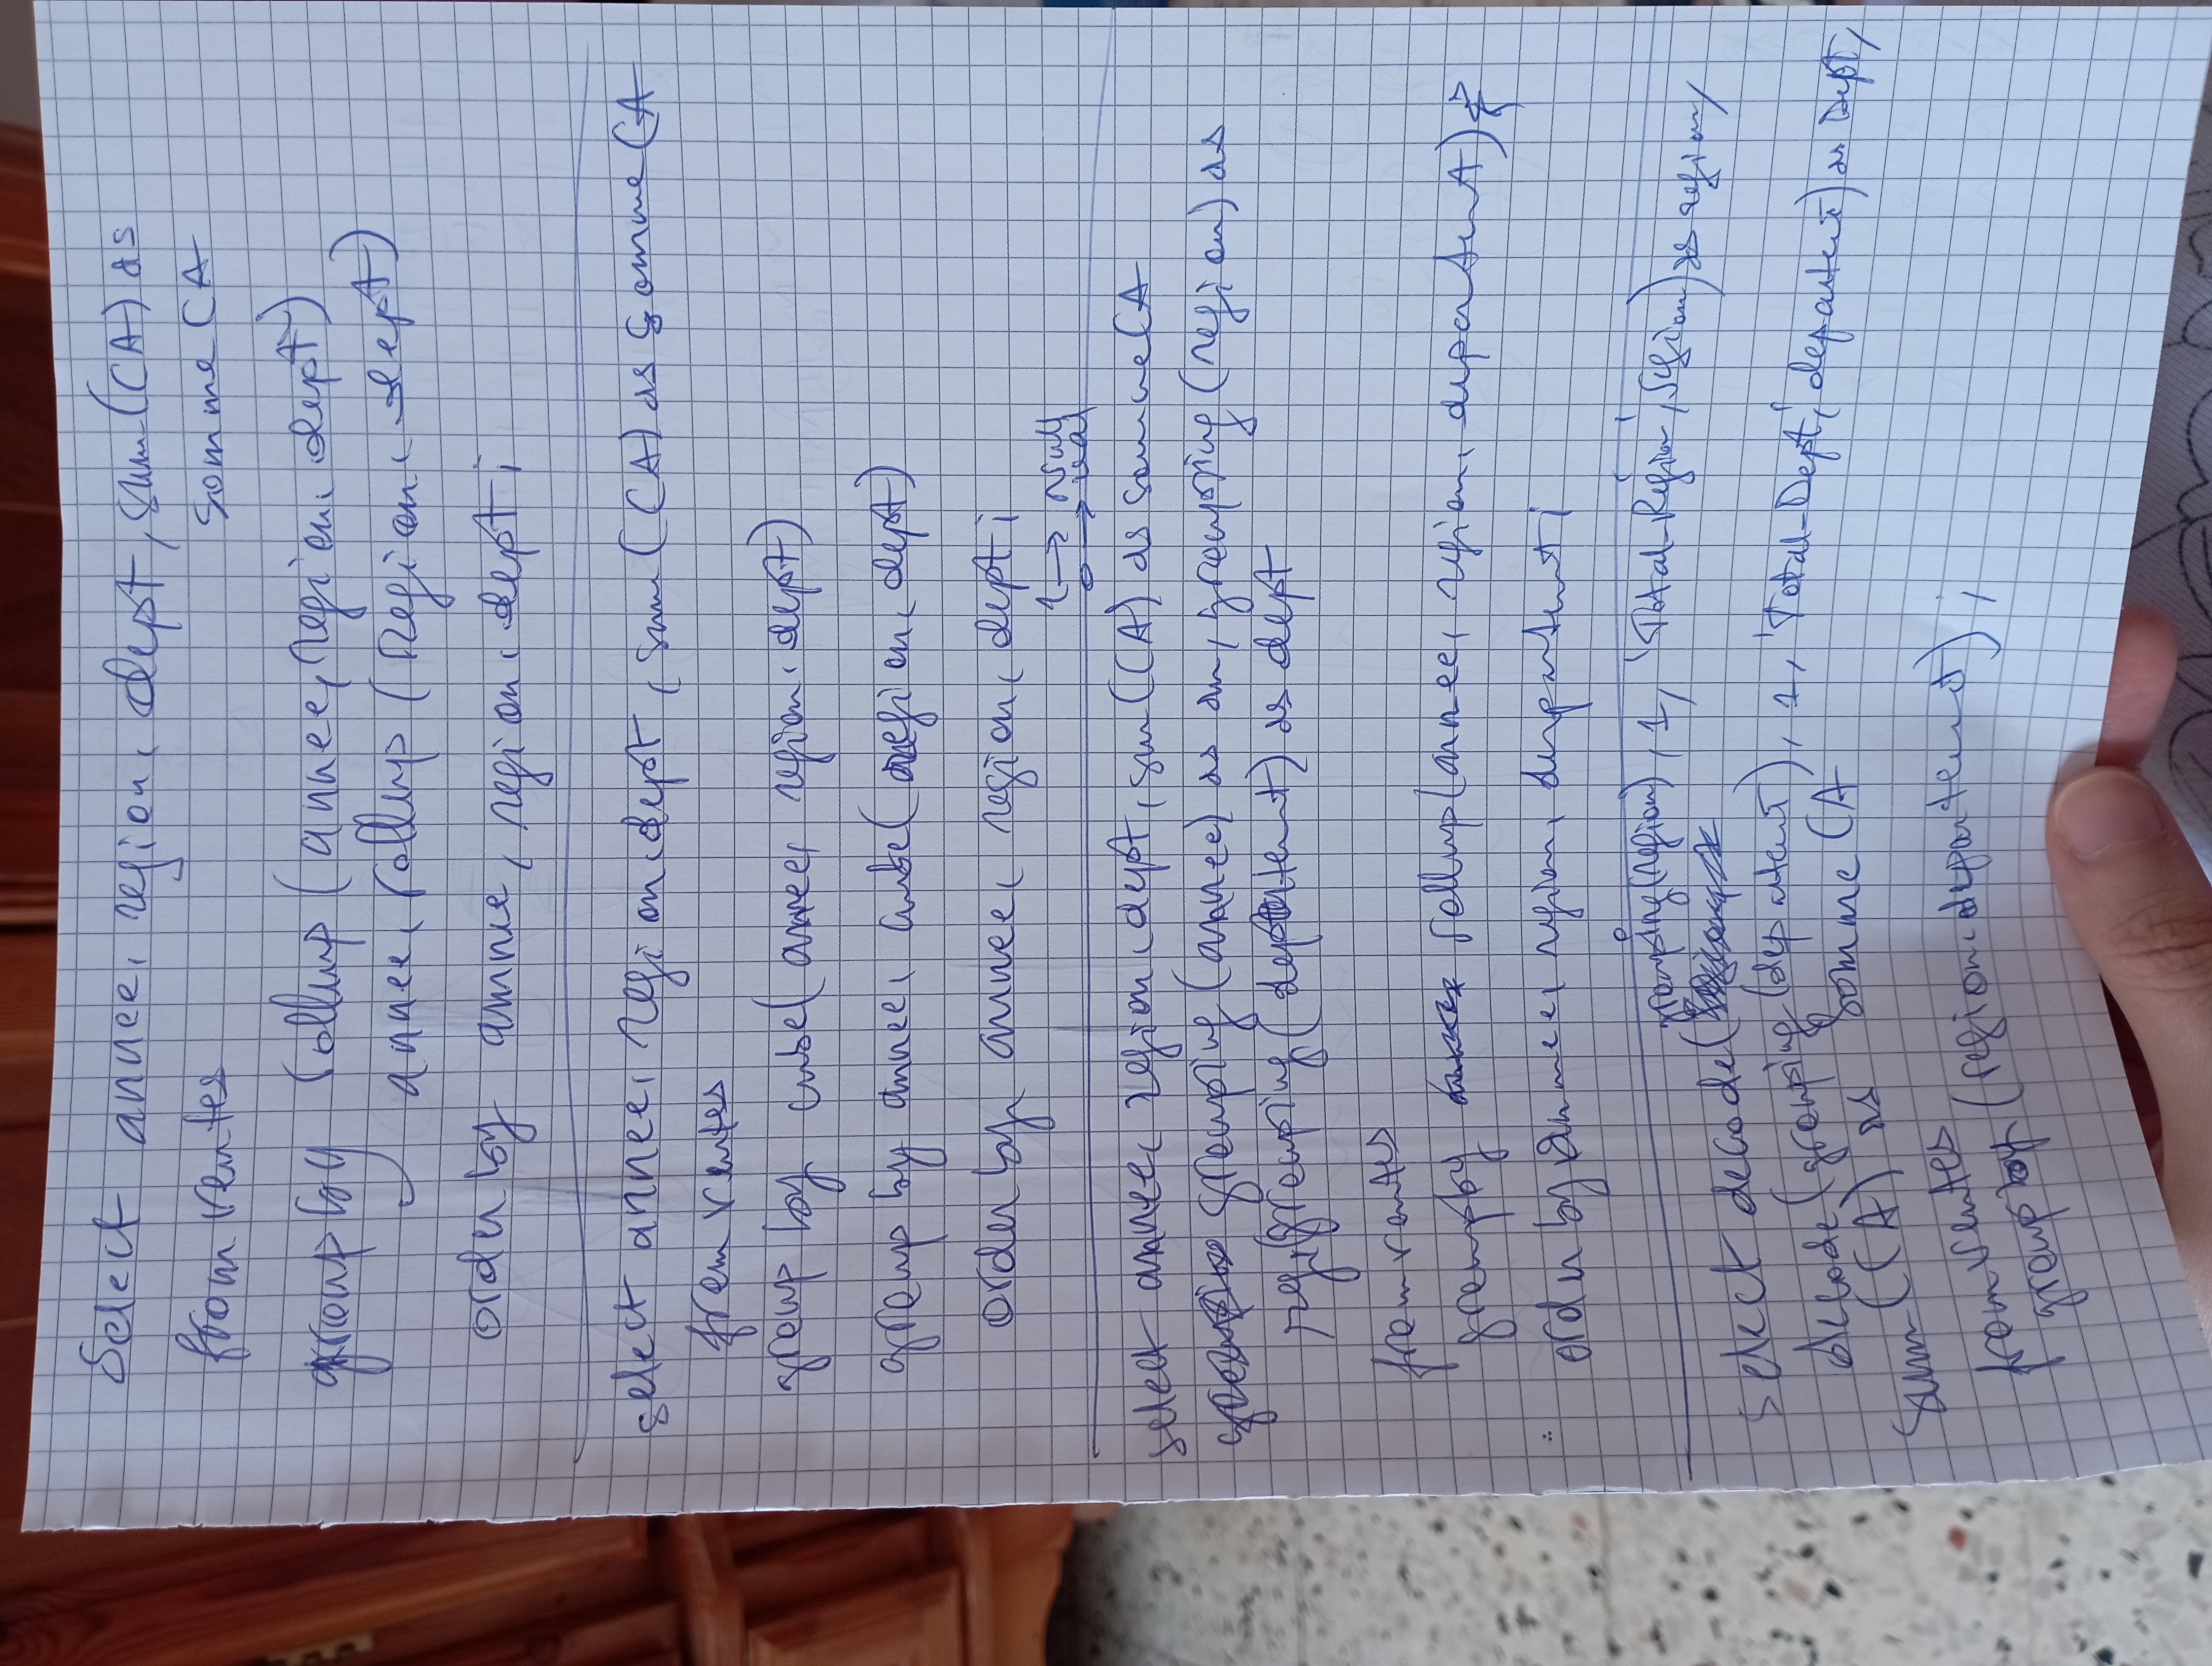 Select annee, region, dept, sum(CA) as
somme CA
from ventes
group by rollup (annee, region, dept)
annee, rollup (region, dept)
order by annee, region, dept ;
select annee, region, dept, sum(CA) as somme CA
from ventes
group by cube(annee, region, dept)
group by annee, cube(region, dept)
order by annee, region, dept ;
1 → Null
0 → real
select annee, region, dept, sum(CA) as somme CA
grouping(annee) as an, grouping(region) as
reg, grouping(departent) as dept
from ventes
group by rollup(annee, region, departent)
order by annee, region, departent ;
grouping(region), 1, 'Total-Region', region) as region,
Select decode(
decode(grouping(departent), 1, 'Total-Dept', departent) as Dept,
Sum(CA) as Somme CA
from ventes
group by (region, departent) ;